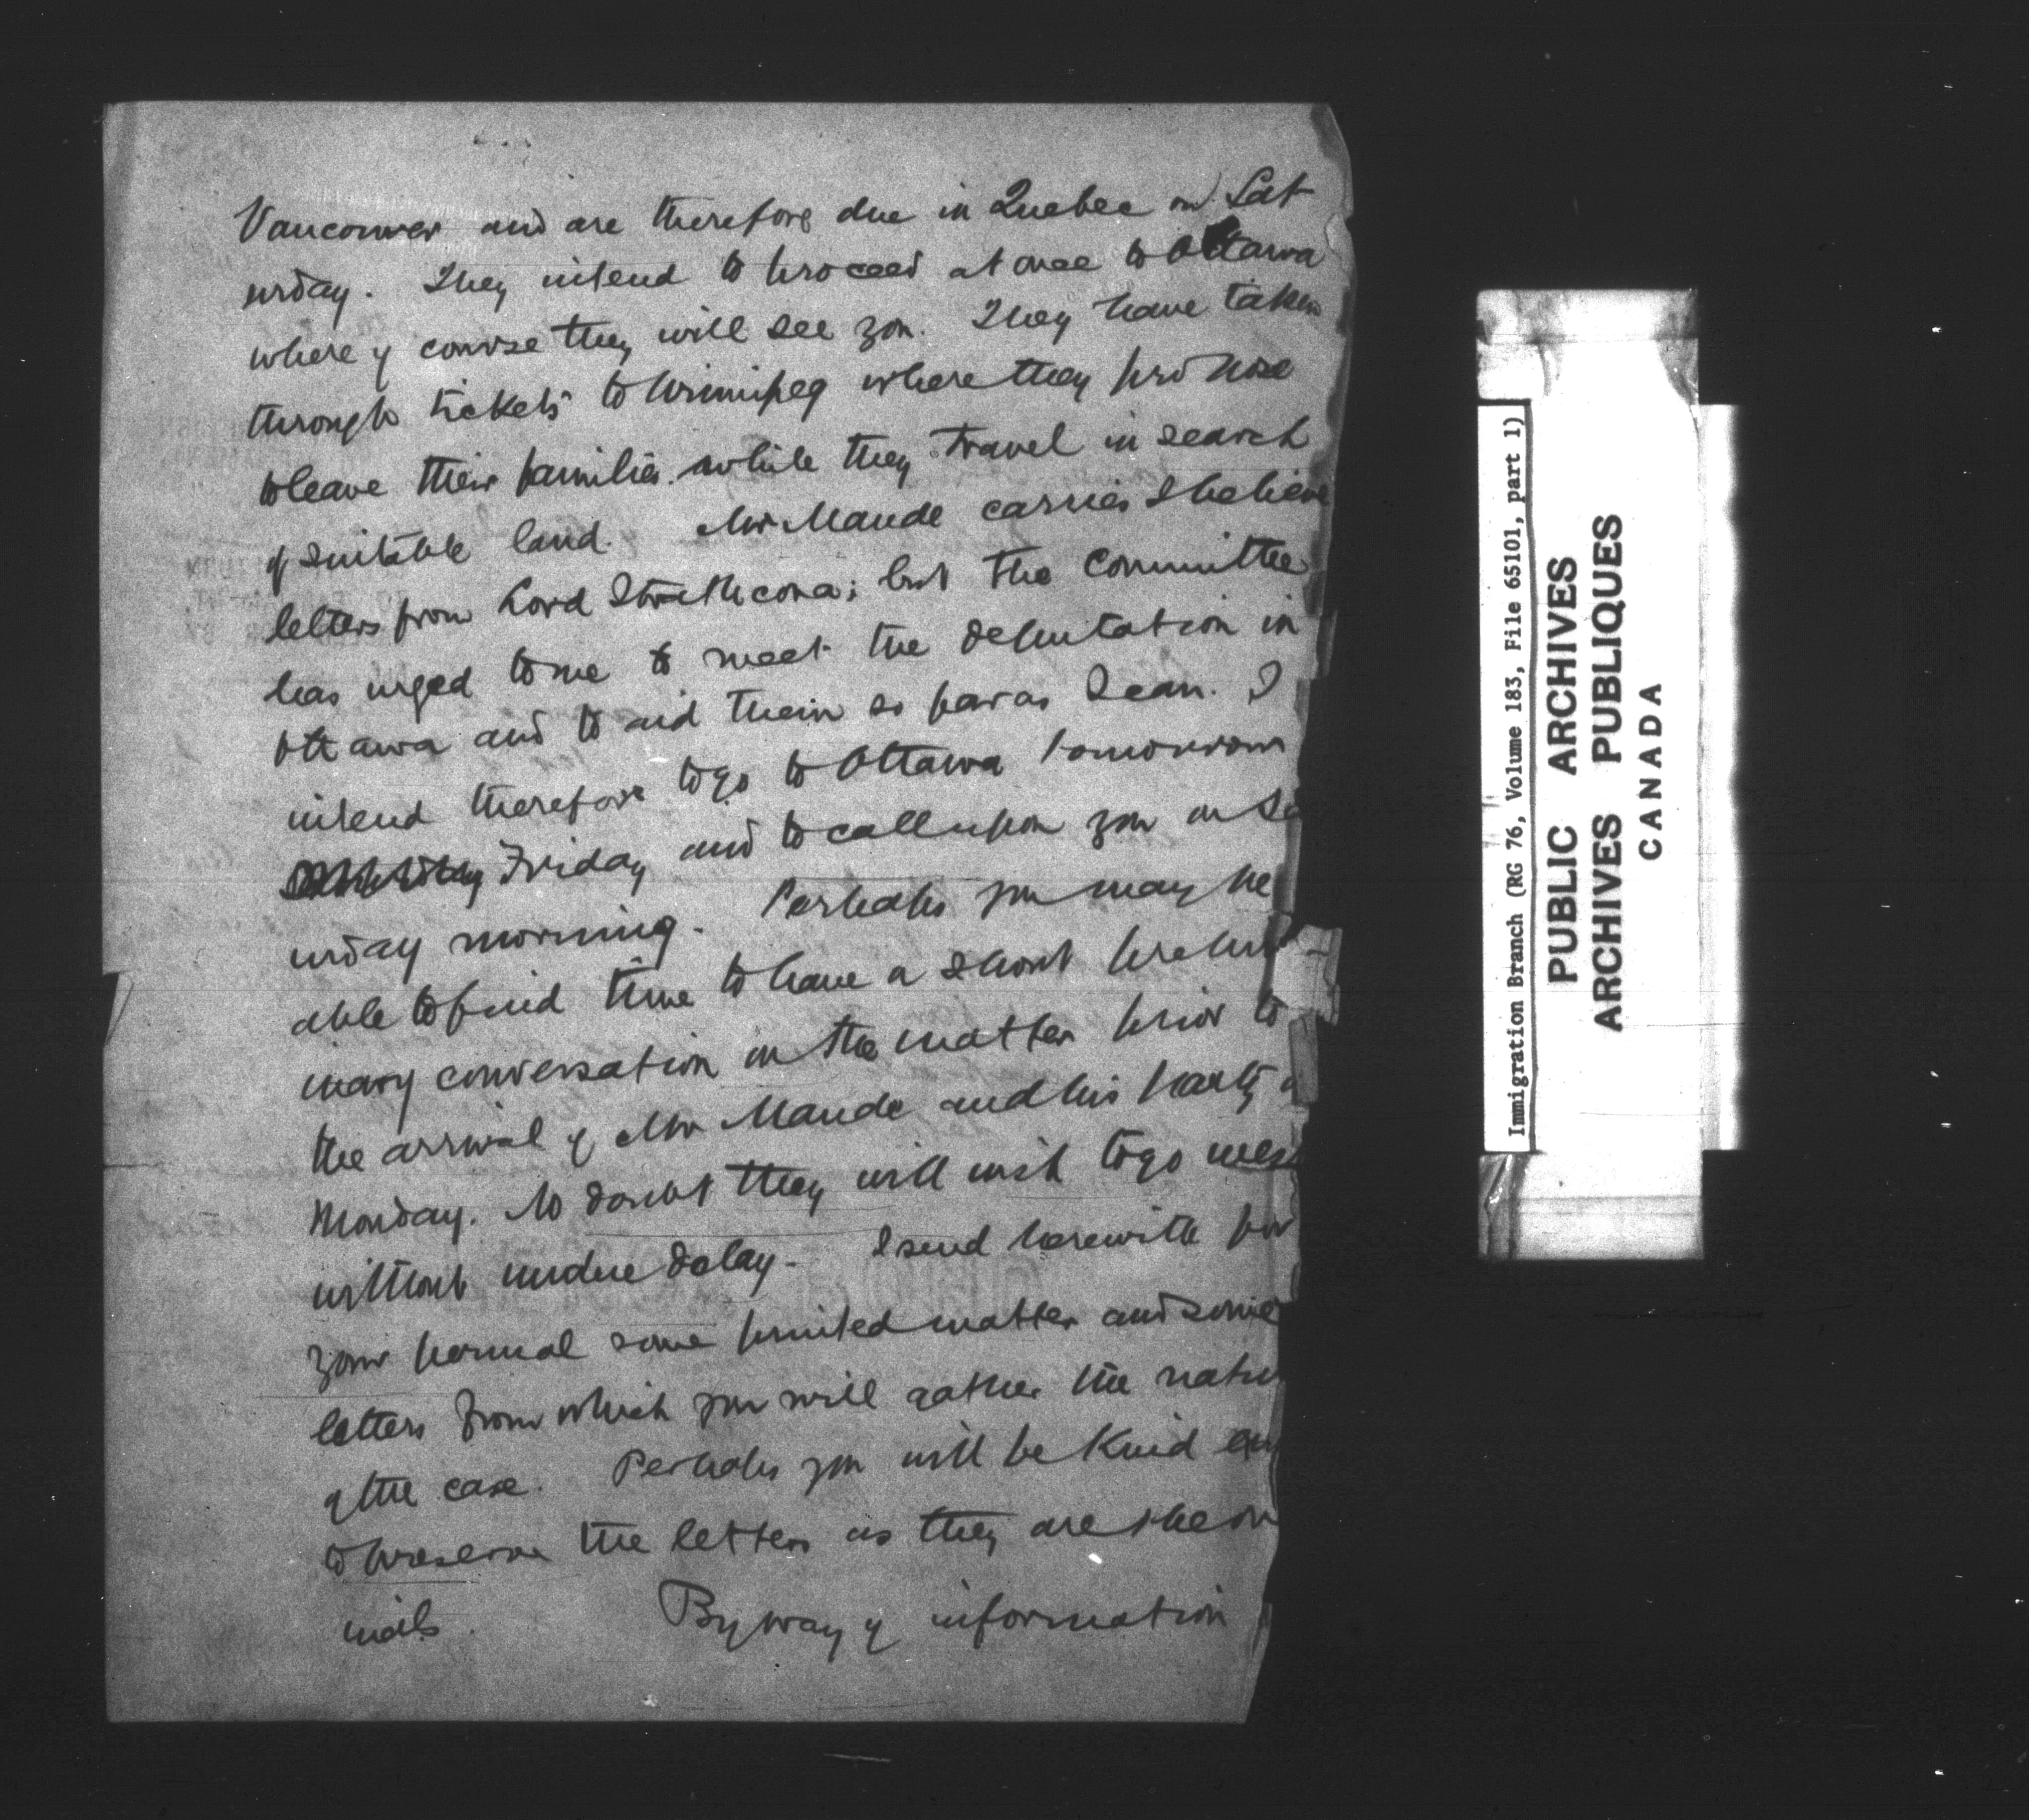 Vancouver and are therefore due in Quebec on Sat
urday. They intend to proceed at once to Ottawa
where of course they will see you. They have taken
through tickets to Winnipeg where they propose
to leave their families while they travel in search
of suitable land. Mr Maude carries I believe
letters from Lord Strathcona; but the committee
has urged to me to meet the deputation in
Ottawa and to aid them so far as I can. I
intend therefore to go to Ottawa tomorrow
Friday and to call upon you on Sa
urday morning. Perhaps you may be
able to find time to have a short prelim
inary conversation on the matter prior to
the arrival of Mr Maude and his party
Monday. No doubt they will wish to go west
without undue delay. I send herewith for
your perusal some printed matter and some
letters from which you will gather the natu
of the case. Perhaps you will be kind
to preserve the letters as they are the or
inals. By way of information
Immigration Branch (RG 76, Volume 183, File 65101, part 1)
PUBLIC ARCHIVES
ARCHIVES PUBLIQUES
CANADA